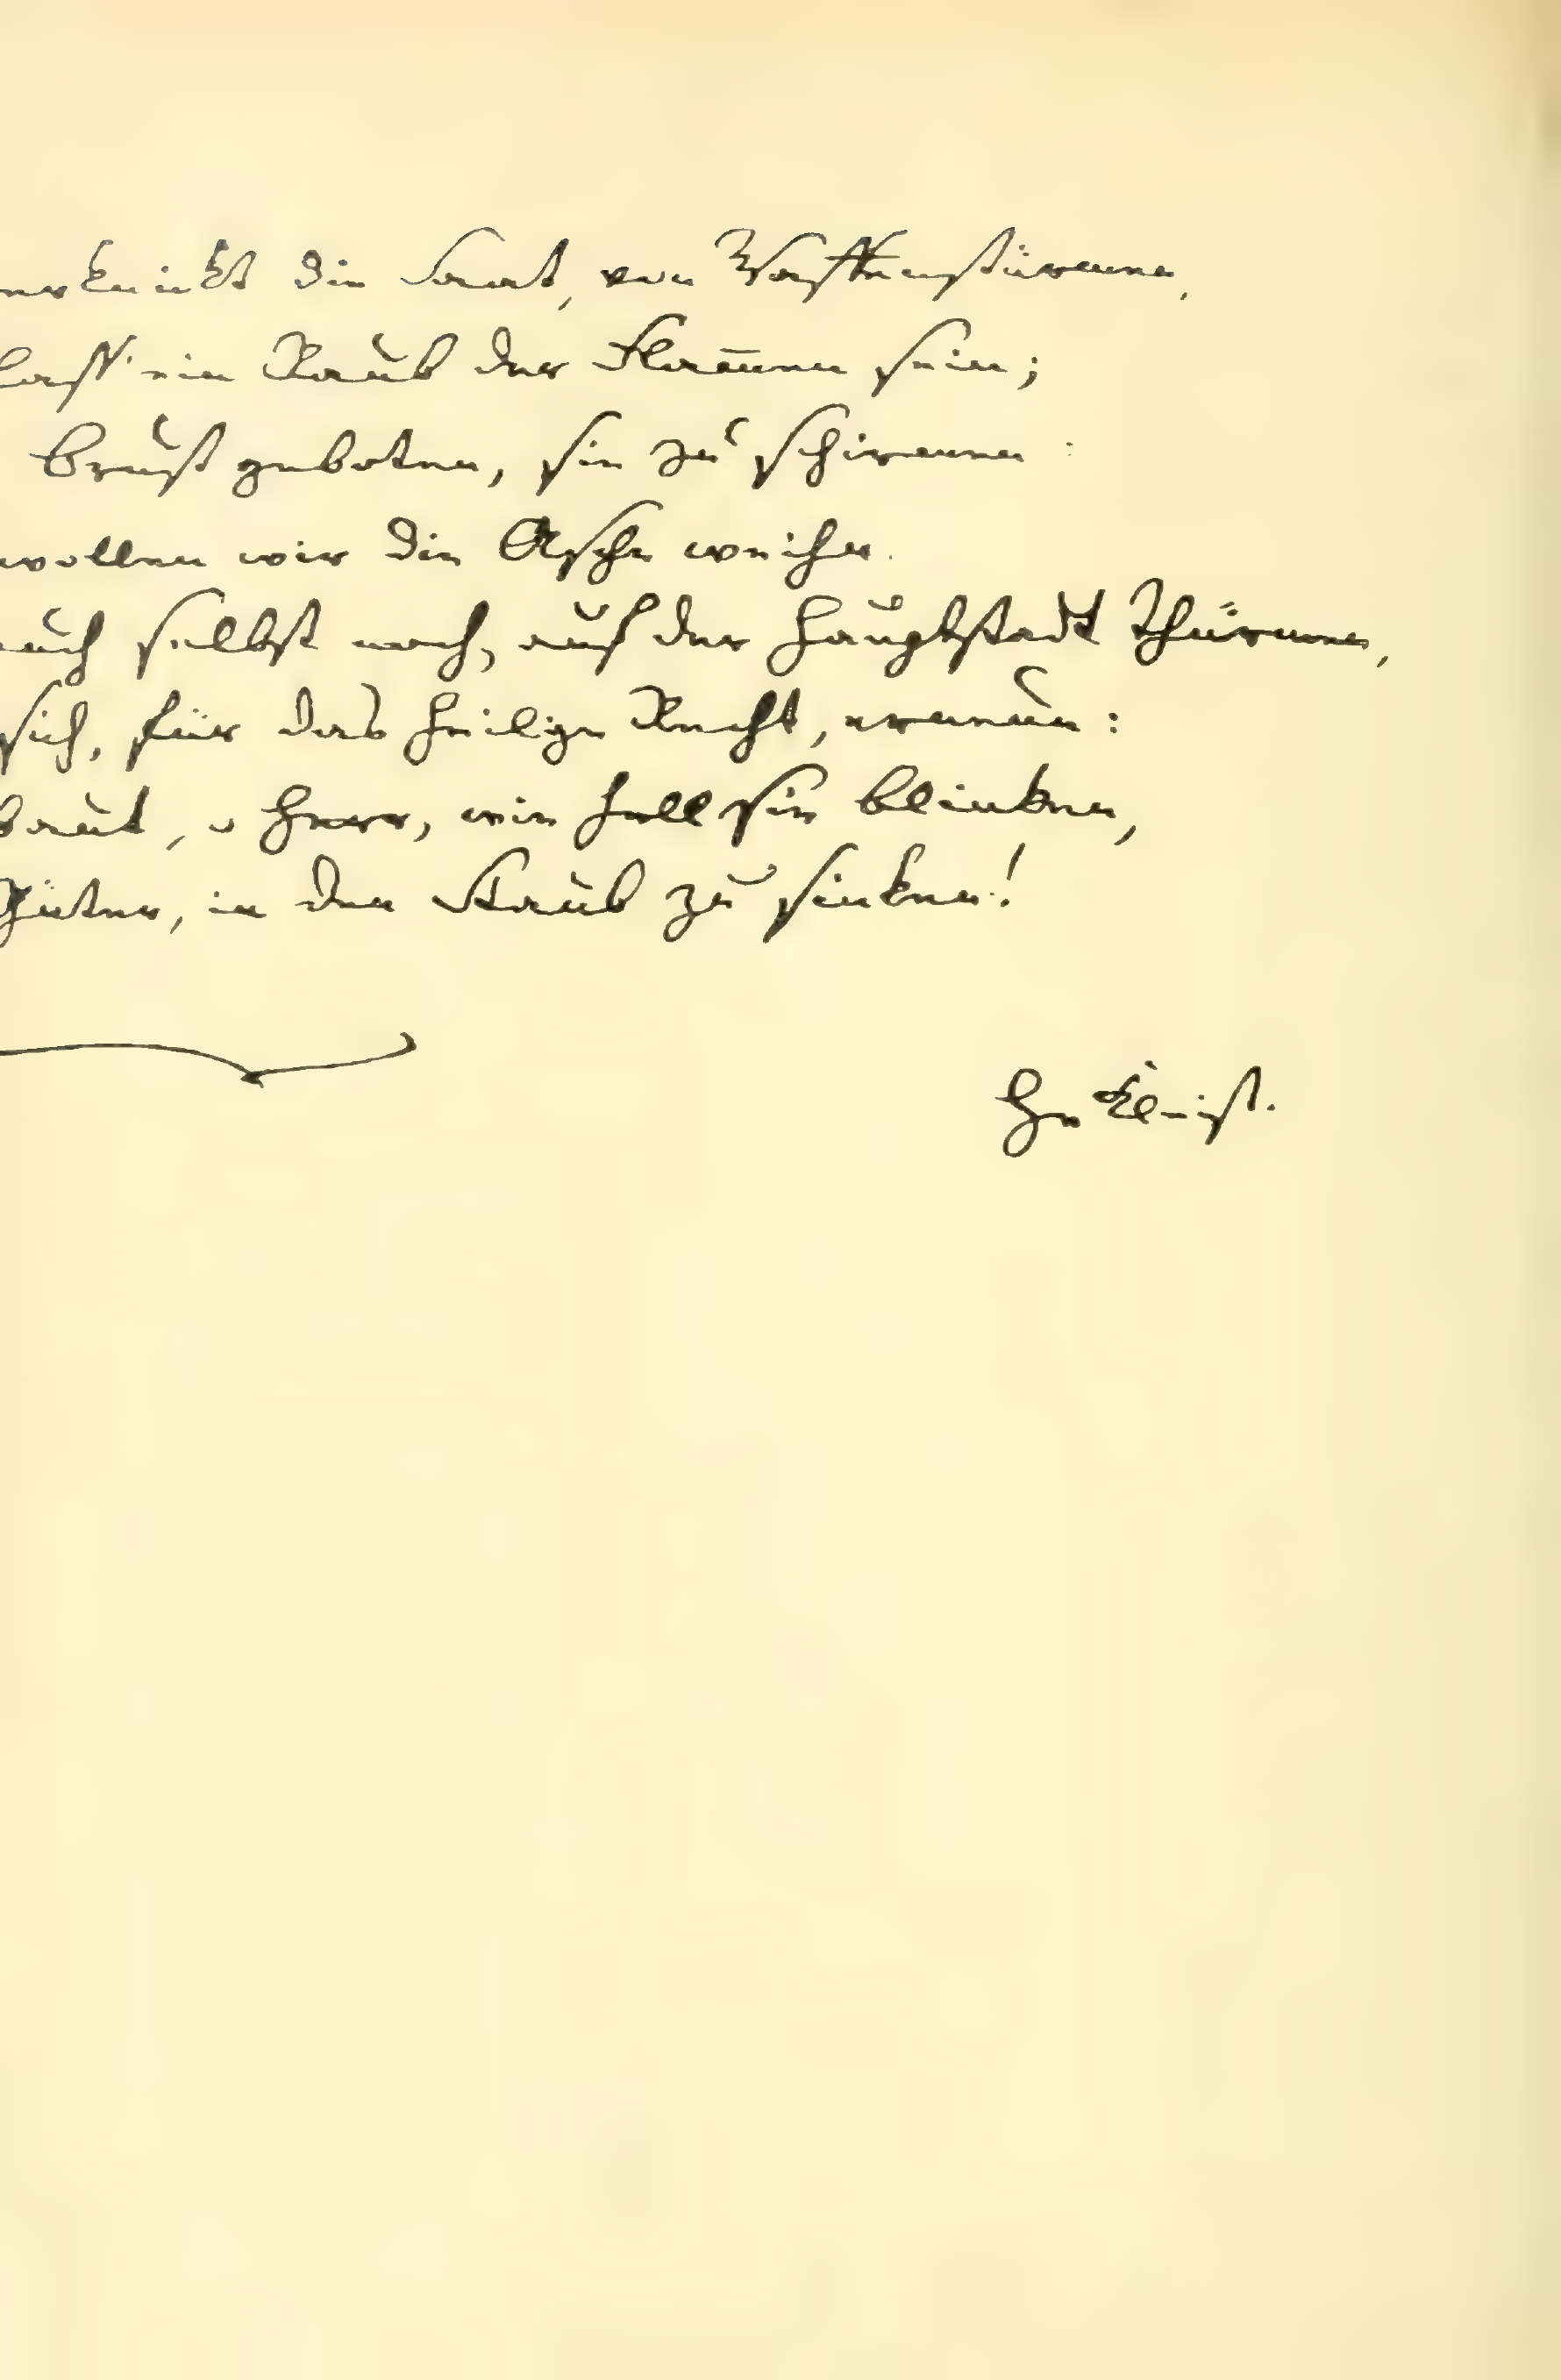 erknickt die Saat, von Waffenstürmen,
ein Raub der Flam̄en sein;
Brust geboten, sie zu schirmen :
wollen wir die Asche weihn.
auch selbst noch, auf der Hauptstadt Thürmen,
sich, für das heilge Recht, erneun:
baut, o Herr, wie hell sie blinken,
Güter, in den Staub zu sinken!
Hv Kleist.